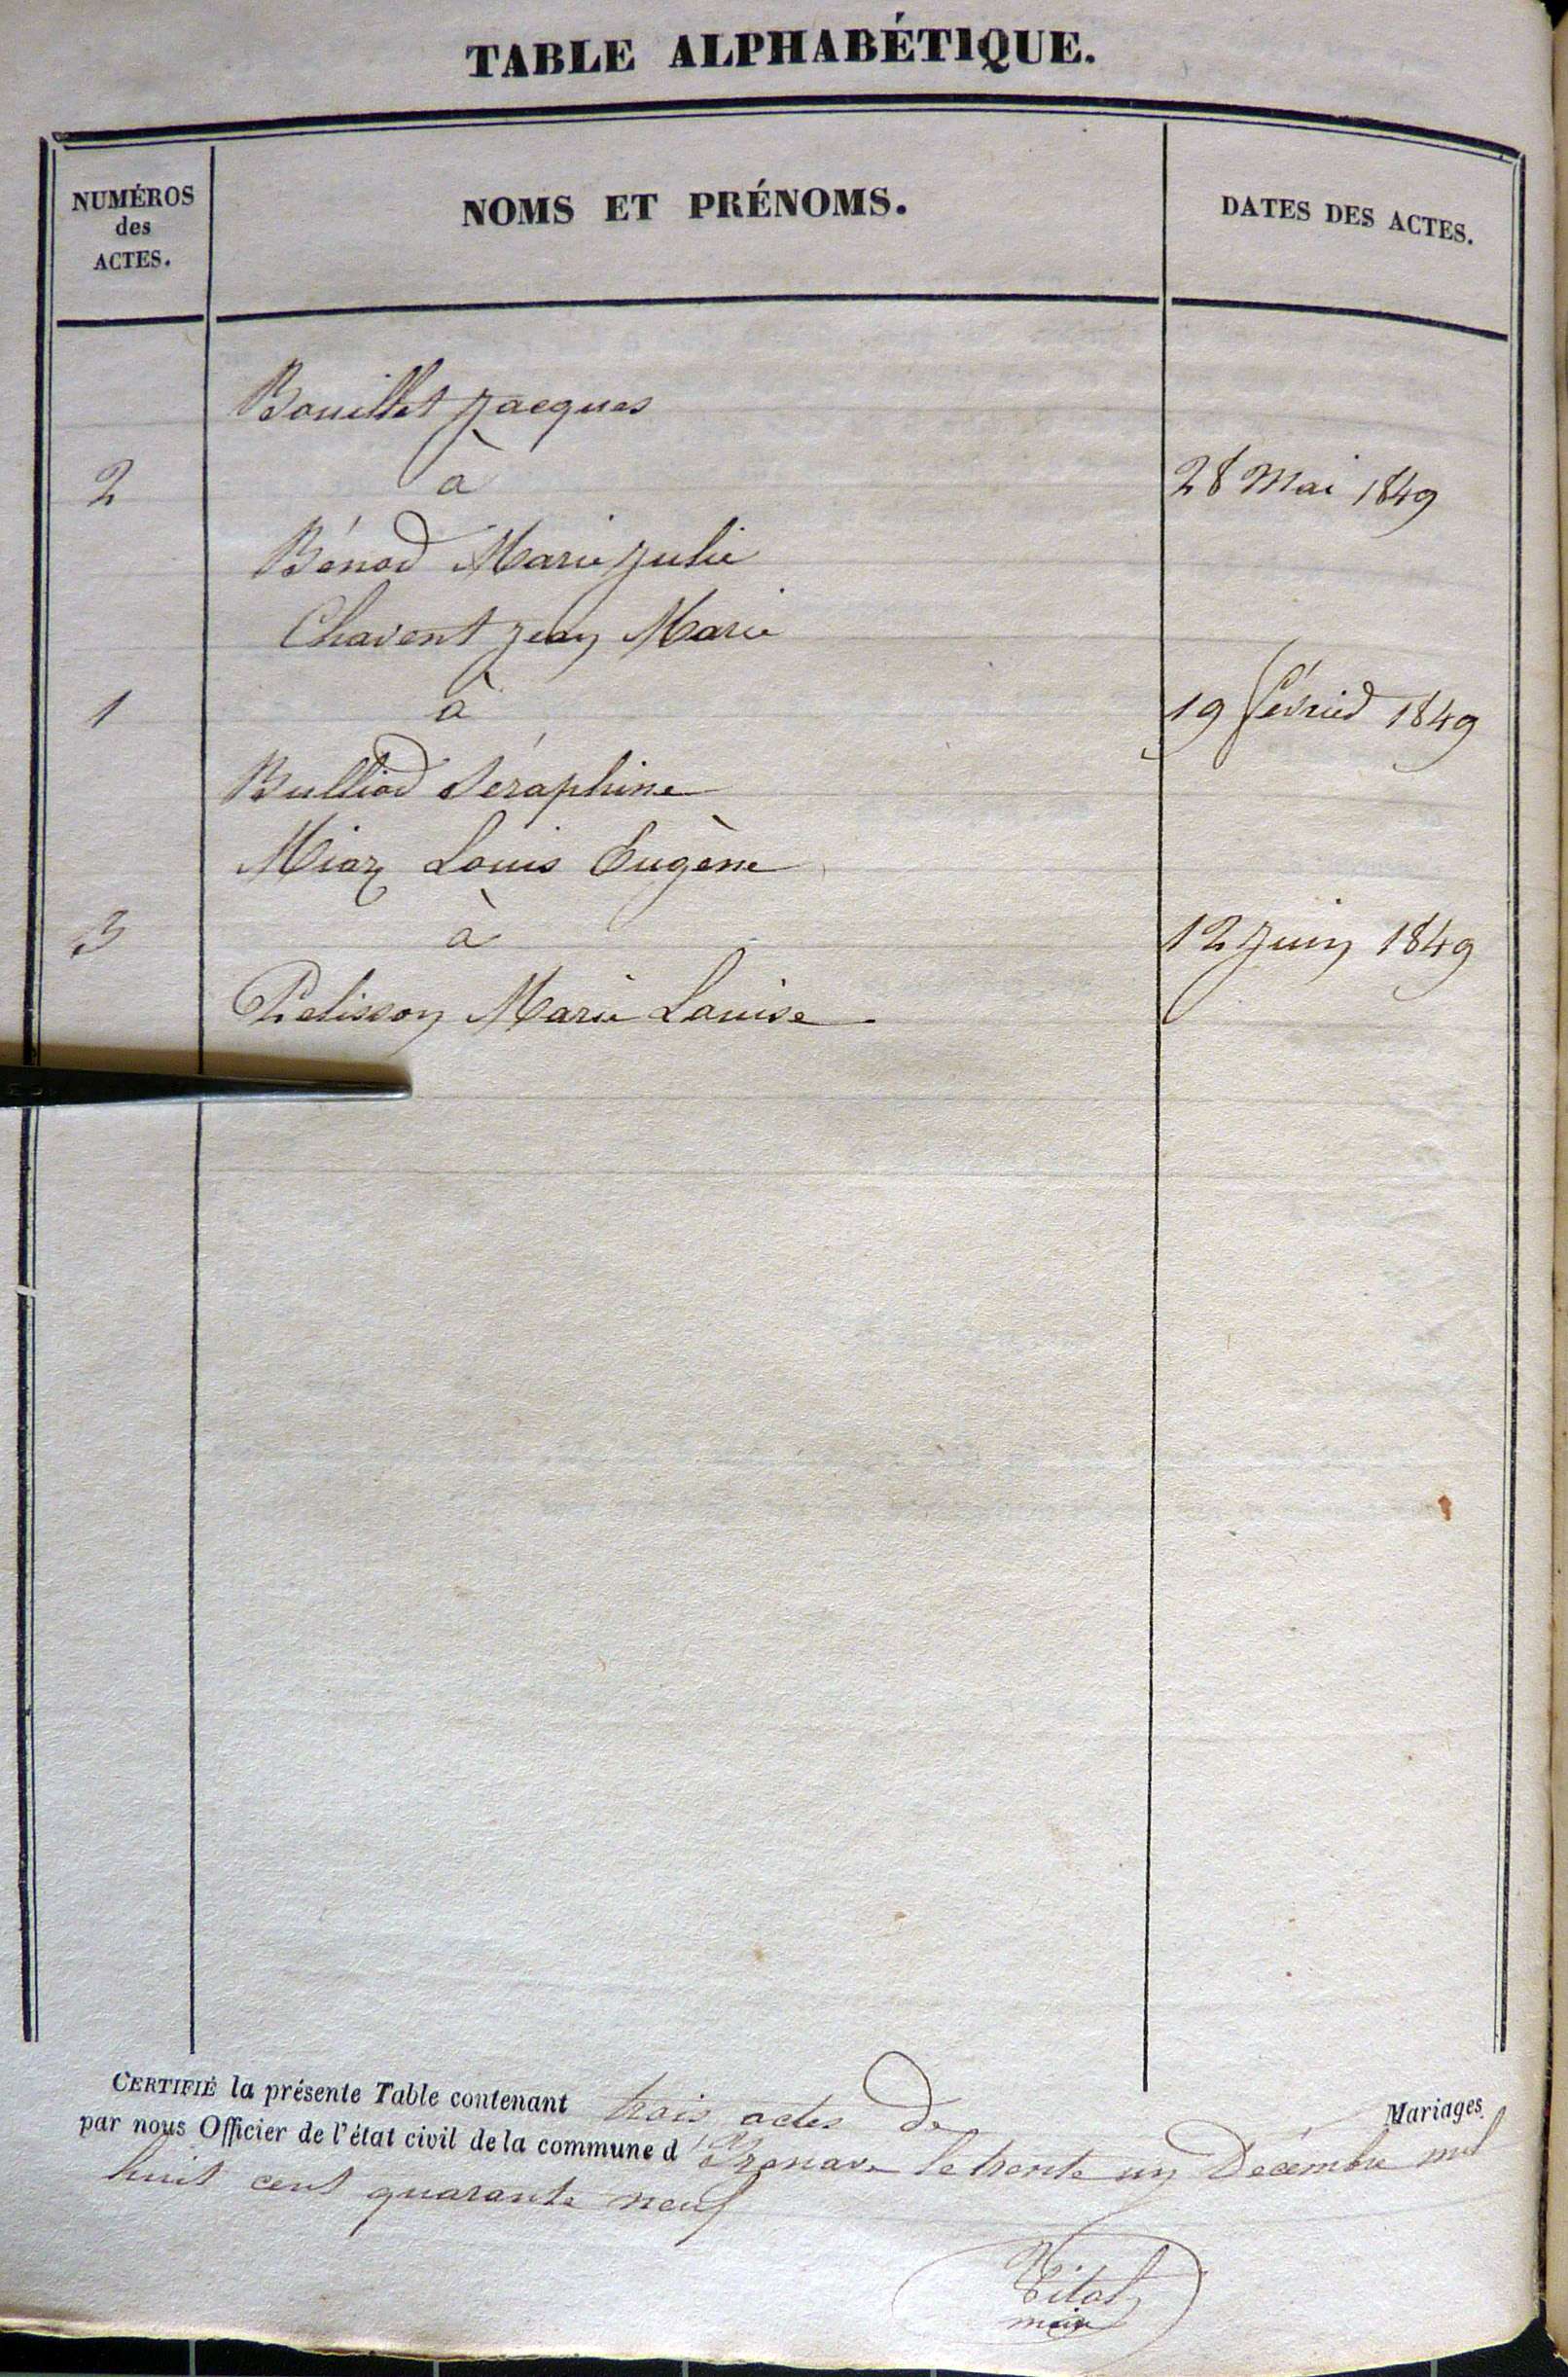 TABLE ALPHABÉTIQUE.
NUMÉROS
des
ACTES.
NOMS ET PRÉNOMS.
DATES DES ACTES.
Bouillet Jacques
2 à 28 Mai 1849
Bénod Marie Julie
Chavent Jean Marie
1 à 19 février 1849
Bulliod Séraphine
Miaz Louis Eugène
3 à 12 Juin 1849
Pelisson Marie Louise
CERTIFIÉ la présente Table contenant trois actes De Mariages
par nous Officier de l'état civil de la commune d Brenaz le trente un Décembre mil
huit cent quarante neuf
maire